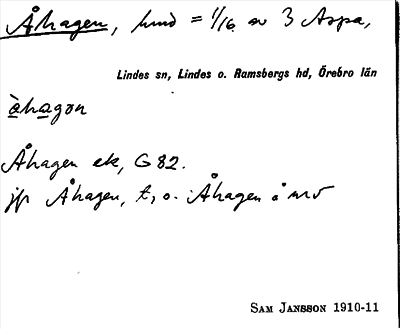 Åhagen, hmd = 1/16 av 3 Aspa,
Lindes sn, Lindes o. Ramsbergs hd, Örebro län
àhagon
Åhagen ek, G 82.
jfr Åhagen, t, o. Åhagen å
SAM JANSSON 1910-11